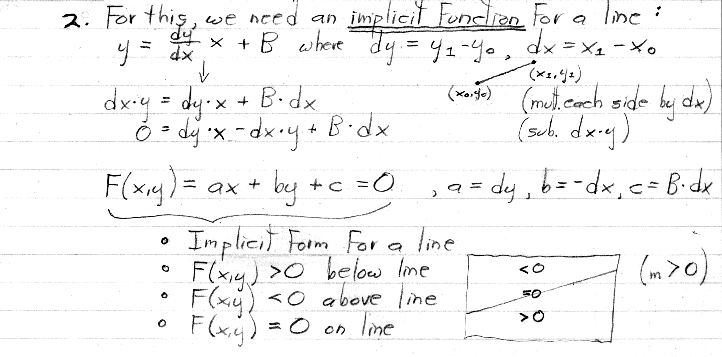 2. For this, we need an implicit Function For a line :
y = dy/dx x + B where dy = y₁-y₀, dx = x₁-x₀
(x₁,y₁)
(x₀,y₀)
dx·y = dy·x + B·dx (mult. each side by dx)
0 = dy·x - dx·y + B·dx (sub. dx·y)
F(x,y) = ax + by + c = 0 , a = dy, b = -dx, c = B·dx
• Implicit Form For a line
• F(x,y) >0 below line <0 (m>0)
• F(x,y) <0 above line =0
• F(x,y) = 0 on line >0